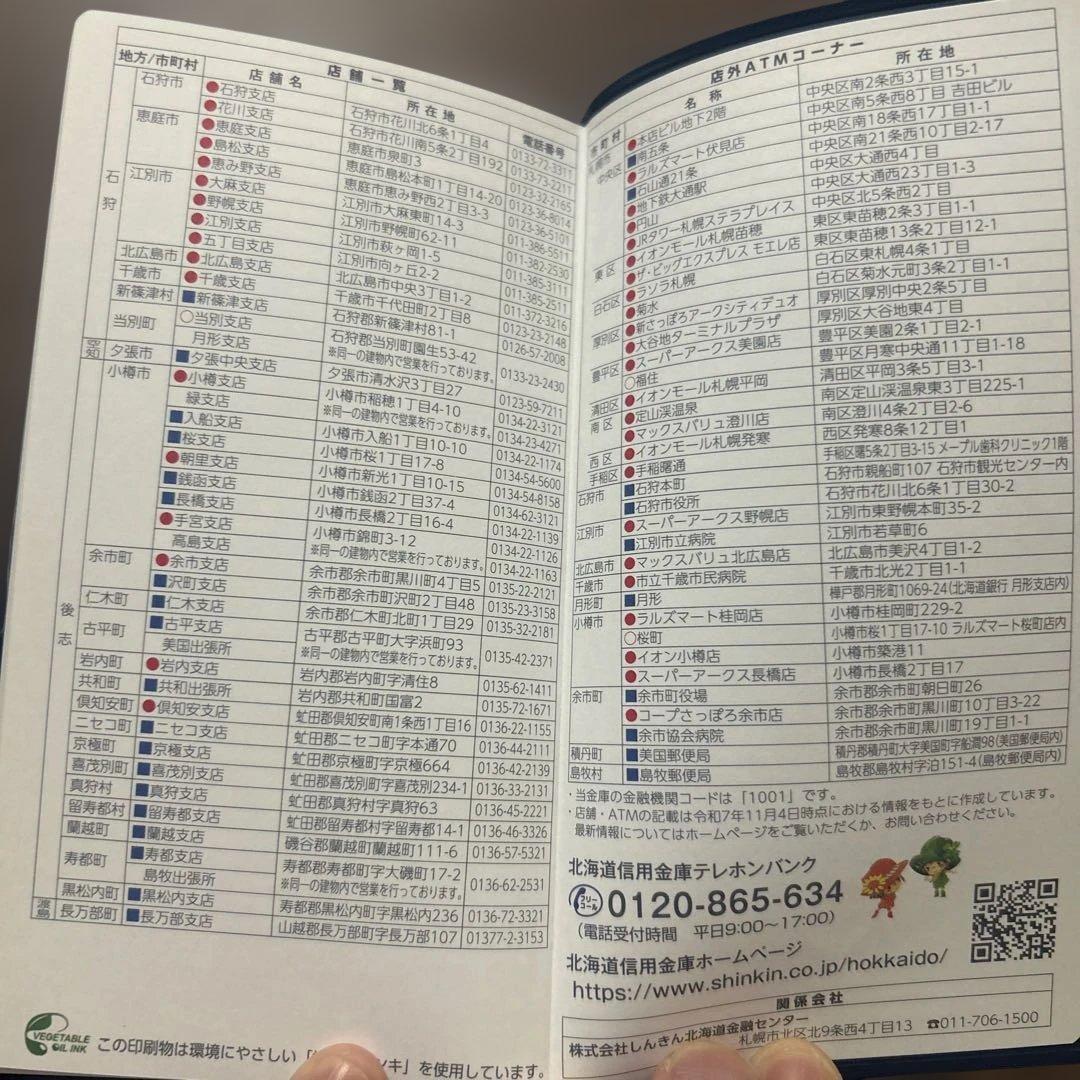 店舗一覧
地方/市町村 店舗名 所在地 電話番号
石狩
石狩市 ●石狩支店 石狩市花川北6条1丁目4 0133-73-3311
●花川支店 石狩市花川南5条2丁目192 0133-73-2211
恵庭市 ●恵庭支店 恵庭市泉町3 0123-32-2165
●島松支店 恵庭市島松本町1丁目14-20 0123-36-8014
●恵み野支店 恵庭市恵み野西2丁目3-3 0123-36-5101
江別市 ●大麻支店 江別市大麻東町14-3 011-386-5511
●野幌支店 江別市野幌町62-11 011-382-2530
●江別支店 江別市萩ヶ岡1-5 011-385-3111
●五丁目支店 江別市向ヶ丘2-2 011-385-2511
北広島市 ●北広島支店 北広島市中央3丁目1-2 011-372-3216
千歳市 ●千歳支店 千歳市千代田町2丁目8 0123-23-2148
新篠津村 ■新篠津支店 石狩郡新篠津村81-1 0126-57-2008
当別町 ○当別支店 石狩郡当別町園生53-42 0133-23-2430
月形支店 ※同一の建物内で営業を行っております。
空知 夕張市 ■夕張中央支店 夕張市清水沢3丁目27 0123-59-7211
後志
小樽市 ●小樽支店 小樽市稲穂1丁目4-10 0134-22-3121
緑支店 ※同一の建物内で営業を行っております。 0134-23-4271
■入船支店 小樽市入船1丁目10-10 0134-22-1174
■桜支店 小樽市桜1丁目17-8 0134-54-5600
●朝里支店 小樽市新光1丁目10-15 0134-54-8158
■銭函支店 小樽市銭函2丁目37-4 0134-62-3121
■長橋支店 小樽市長橋2丁目16-4 0134-22-1139
●手宮支店 小樽市錦町3-12 0134-22-1126
高島支店 ※同一の建物内で営業を行っております。 0134-22-1163
余市町 ●余市支店 余市郡余市町黒川町4丁目5 0135-22-2121
■沢町支店 余市郡余市町沢町2丁目48 0135-23-3158
仁木町 ■仁木支店 余市郡仁木町北町1丁目29 0135-32-2181
古平町 ■古平支店 古平郡古平町大字浜町93 0135-42-2371
美国出張所 ※同一の建物内で営業を行っております。
岩内町 ●岩内支店 岩内郡岩内町字清住8 0135-62-1411
共和町 ■共和出張所 岩内郡共和町国富2 0135-72-1671
倶知安町 ●倶知安支店 虻田郡倶知安町南1条西1丁目16 0136-22-1155
ニセコ町 ■ニセコ支店 虻田郡ニセコ町字本通70 0136-44-2111
京極町 ■京極支店 虻田郡京極町字京極664 0136-42-2139
喜茂別町 ■喜茂別支店 虻田郡喜茂別町字喜茂別234-1 0136-33-2131
真狩村 ■真狩支店 虻田郡真狩村字真狩63 0136-45-2221
留寿都村 ■留寿都支店 虻田郡留寿都村字留寿都14-1 0136-46-3326
蘭越町 ■蘭越支店 磯谷郡蘭越町蘭越町111-6 0136-57-5321
寿都町 ■寿都支店 寿都郡寿都町字大磯町17-2 0136-62-2531
島牧出張所 ※同一の建物内で営業を行っております。
黒松内町 ■黒松内支店 寿都郡黒松内町字黒松内236 0136-72-3321
渡島 長万部町 ■長万部支店 山越郡長万部町字長万部107 01377-2-3153
VEGETABLE
OIL INK
この印刷物は環境にやさしい「 ンキ」を使用しています。
店外ATMコーナー
市町村 名称 所在地
札幌市
中央区 ●本店ビル地下2階 中央区南2条西3丁目15-1
■南五条 中央区南5条西8丁目 吉田ビル
●ラルズマート伏見店 中央区南18条西17丁目1-1
■石山通21条 中央区南21条西10丁目2-17
●地下鉄大通駅 中央区大通西4丁目
●円山 中央区大通西23丁目1-3
●JRタワー札幌ステラプレイス 中央区北5条西2丁目
東区 ●イオンモール札幌苗穂 東区東苗穂2条3丁目1-1
●ザ・ビッグエクスプレス モエレ店 東区東苗穂13条2丁目12-1
白石区 ●ラソラ札幌 白石区東札幌4条1丁目
●菊水 白石区菊水元町3条2丁目1-1
厚別区 ●新さっぽろアークシティデュオ 厚別区厚別中央2条5丁目
●大谷地ターミナルプラザ 厚別区大谷地東4丁目
豊平区 ●スーパーアークス美園店 豊平区美園2条1丁目2-1
○福住 豊平区月寒中央通11丁目1-18
清田区 ●イオンモール札幌平岡 清田区平岡3条5丁目3-1
南区 ●定山渓温泉 南区定山渓温泉東3丁目225-1
●マックスバリュ澄川店 南区澄川4条2丁目2-6
西区 ●イオンモール札幌発寒 西区発寒8条12丁目1
手稲区 ●手稲曙通 手稲区曙5条2丁目3-15 メープル歯科クリニック1階
石狩市 ■石狩本町 石狩市親船町107 石狩市観光センター内
■石狩市役所 石狩市花川北6条1丁目30-2
江別市 ●スーパーアークス野幌店 江別市東野幌本町35-2
■江別市立病院 江別市若草町6
北広島市 ●マックスバリュ北広島店 北広島市美沢4丁目1-2
千歳市 ●市立千歳市民病院 千歳市北光2丁目1-1
月形町 ■月形 樺戸郡月形町1069-24(北海道銀行 月形支店内)
小樽市 ●ラルズマート桂岡店 小樽市桂岡町229-2
○桜町 小樽市桜1丁目17-10 ラルズマート桜町店内
●イオン小樽店 小樽市築港11
●スーパーアークス長橋店 小樽市長橋2丁目17
余市町 ■余市町役場 余市郡余市町朝日町26
●コープさっぽろ余市店 余市郡余市町黒川町10丁目3-22
■余市協会病院 余市郡余市町黒川町19丁目1-1
積丹町 ■美国郵便局 積丹郡積丹町大字美国町字船澗98(美国郵便局内)
島牧村 ■島牧郵便局 島牧郡島牧村字泊151-4(島牧郵便局内)
・当金庫の金融機関コードは「1001」です。
・店舗・ATMの記載は令和7年11月4日時点における情報をもとに作成しています。
最新情報についてはホームページをご覧いただくか、お問い合わせください。
北海道信用金庫テレホンバンク
フリーコール 0120-865-634
(電話受付時間 平日9:00~17:00)
北海道信用金庫ホームページ
https://www.shinkin.co.jp/hokkaido/
関係会社
株式会社しんきん北海道金融センター 札幌市北区北9条西4丁目13 ☎011-706-1500